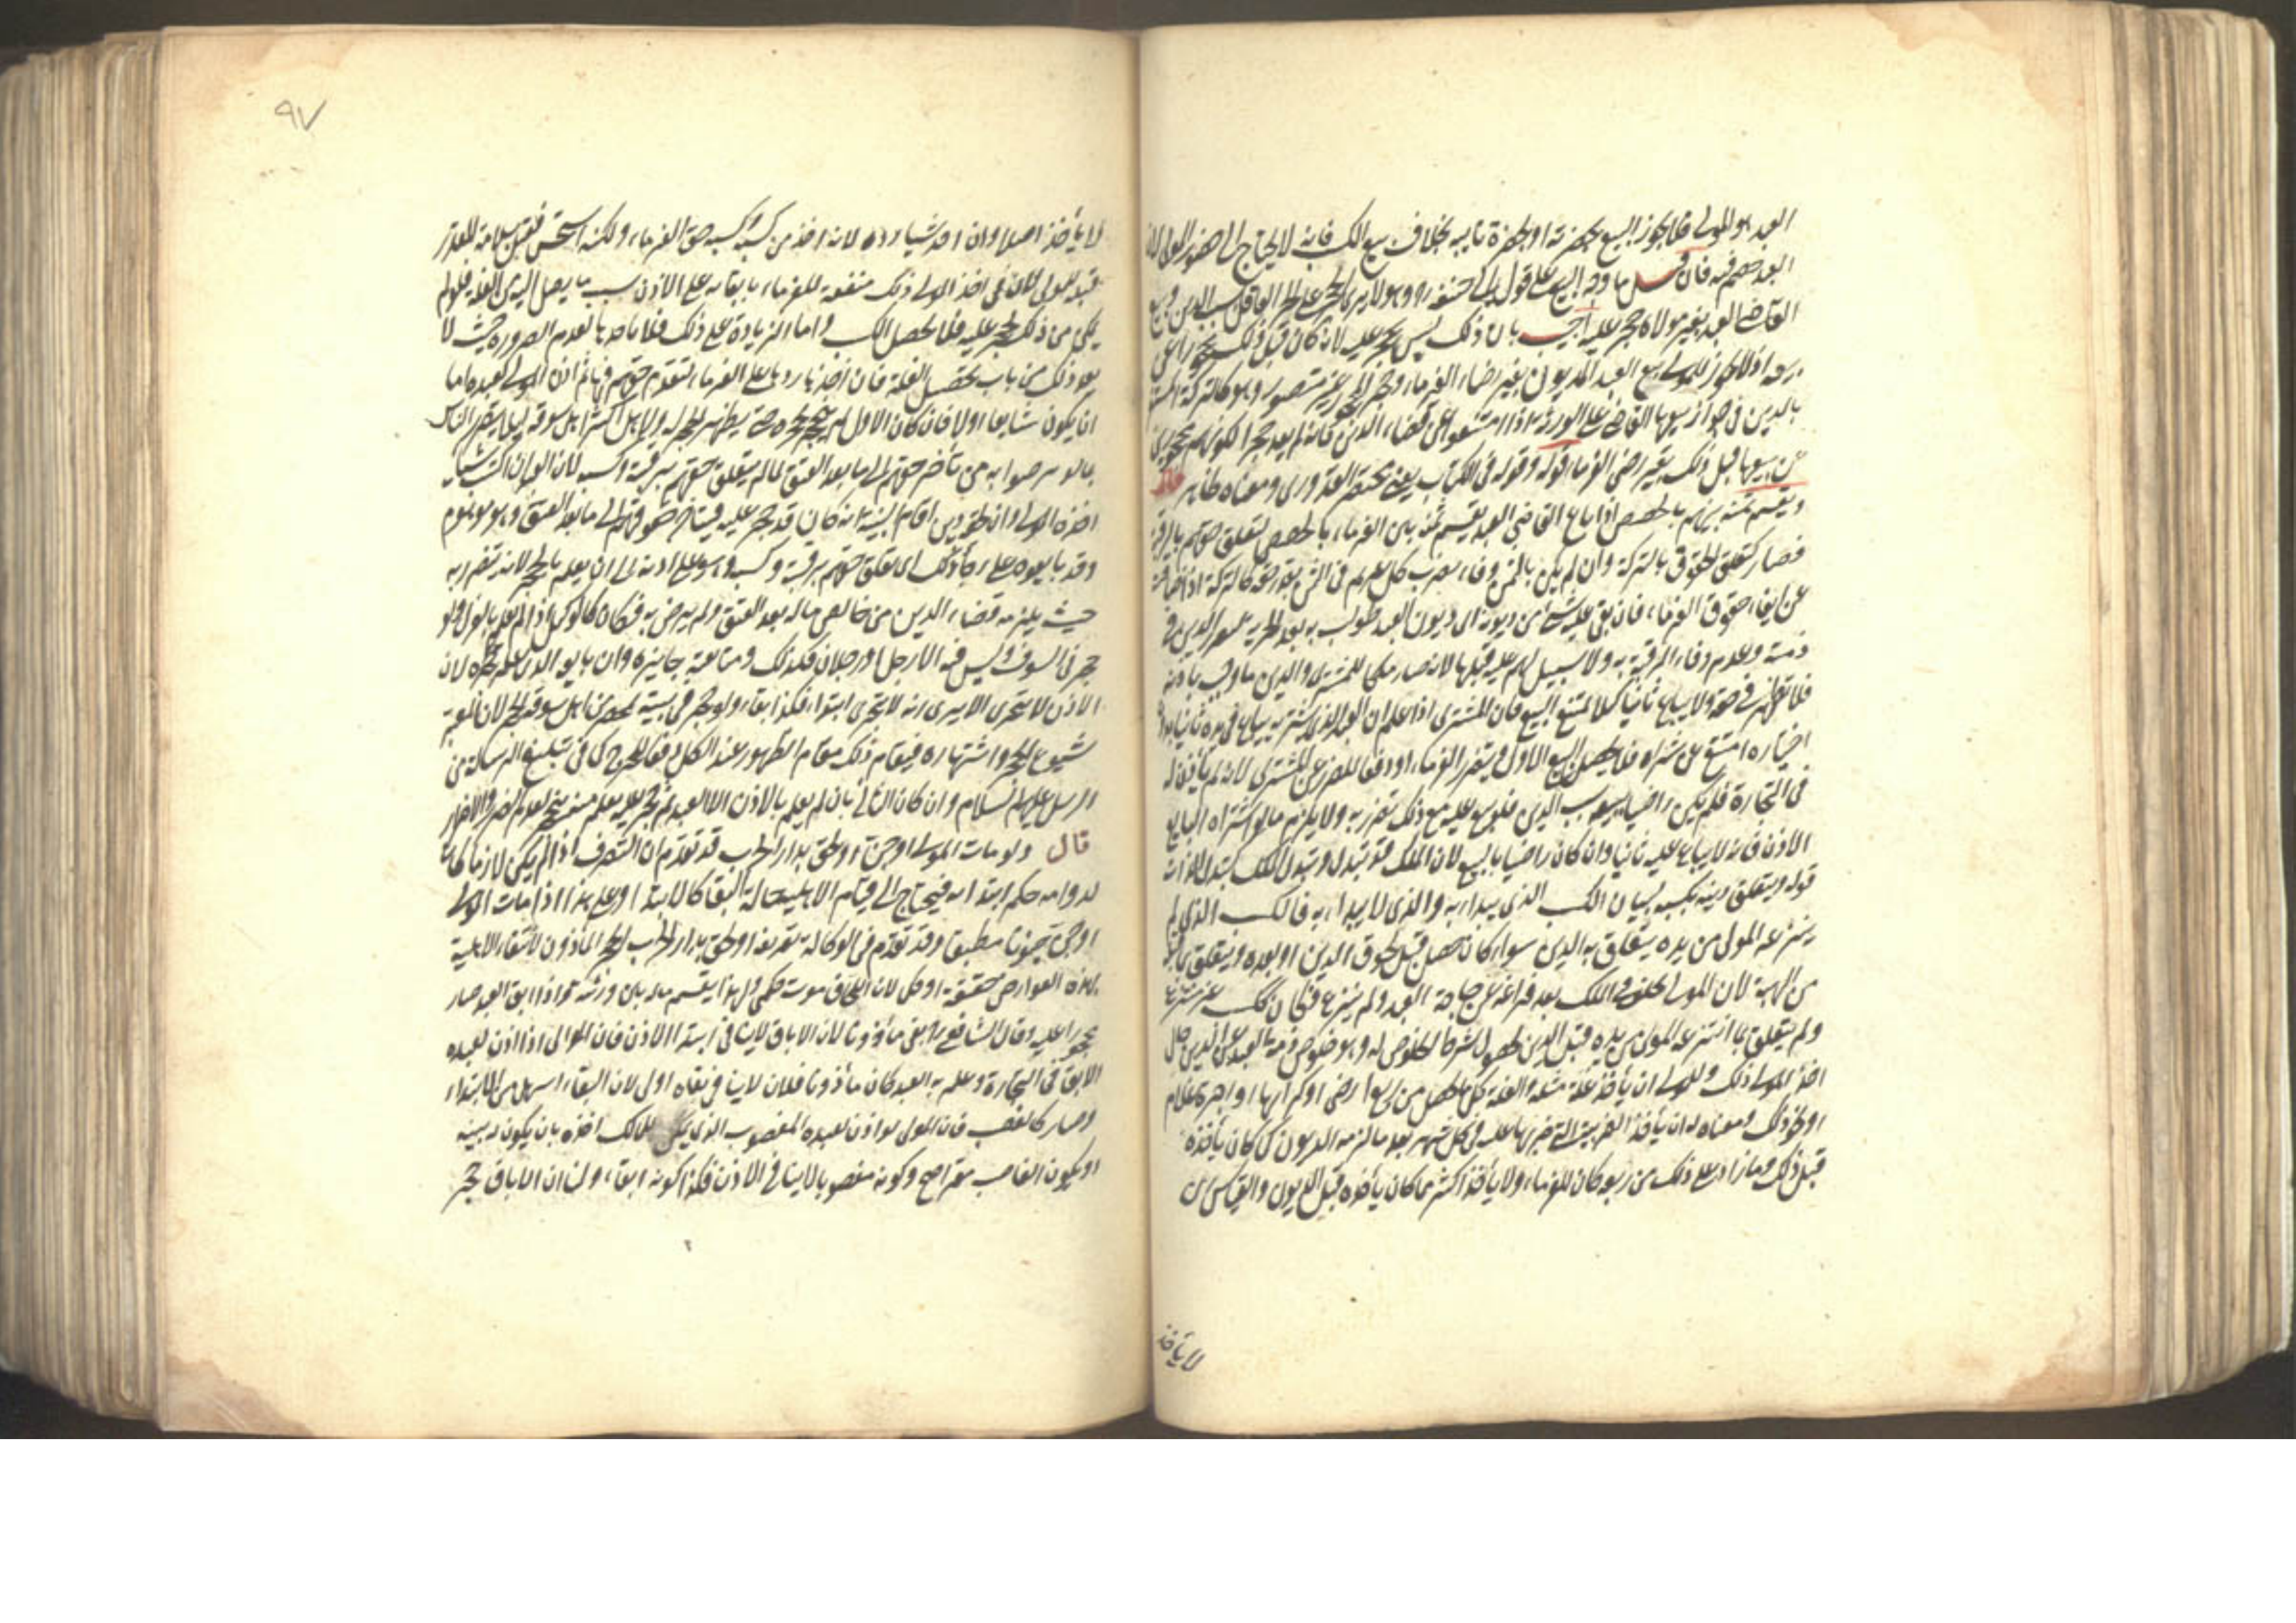 العبد هو المولى فلا يجوز البيع الا بحضرته او بحضرة نايبه بخلاف بيع الكسب فانه لا يحتاج الى حضور المولى لان
العبد خصم فيه فان قيل ما وجه البيع على قول ابى حنيفة ره وهو لا يرى الحجر على الحر العاقل بسبب الدين وبيع
القاضى العبد بغير مولاه حجر عليه اجيب بان ذلك ليس بحجر عليه لانه كان قبل ذلك محجورا عن
بيعه اذ لا يجوز للمولى بيع العبد المديون بغير رضاء الغرماء وحجر المحجور غير متصور وهو كالتركة المستغرقة
بالدين فى جواز بيعها القاضى على الورثة اذا امتنعوا عن قضاء الدين فانه لم يعد حجرا لكونهم محجورين
عن بيعها قبل ذلك بغير رضى الغرماء قوله وقوله فى الكتاب يعنى مختصر القدورى ومعناه ظاهر قال
ويقسم ثمنه بينهم بالحصص اذا باع القاضى العبد يقسم ثمنه بين الغرماء بالحصص لتعلق حقهم بالرقبة
فصار كتعلق الحقوق بالتركة وان لم يكن بالثمن وفاء يضرب كل غريم فى الثمن بقدر حقه كالتركة اذا ضاقت
عن ايفاء حقوق الغرماء فان بقى عليه شئ من ديونه اى ديون العبد طولب به بعد الحرية لتقرر الدين فى
ذمته وعدم وفاء الرقبة به ولا سبيل لهم عليه قبلها لانه صار ملكا للمشترى والدين ما وجب باذنه
فلا يظهر فى حقه ولا يباع ثانيا كيلا يمتنع البيع فان المشترى اذا علم ان العبد الذى يشتريه يباع فى يده ثانيا بدون
اختياره امتنع عن شراه فلا يحصل البيع الاول فيتضرر الغرماء او دفعا للضرر عن المشترى لانه لم يأذن له
فى التجارة فلم يكن راضيا ببيعه بسبب الدين فلو بيع عليه مع ذلك تضرر به ولا يلزم ما لو اشتراه البايع
الاذن فانه لا يباع عليه ثانيا وان كان راضيا بالبيع لان الملك قد تبدل وتبدل الملك كتبدل الذات
قوله ويتعلق دينه بكسبه لبيان الكسب الذى يبداء به والذى لا يبداء به فالكسب الذى لم
ينتزعه المولى من يده يتعلق به الدين سواء كان حصل قبل لحوق الدين او بعده ويتعلق بما يقبل
من الهبة لان المولى يخلفه فى الملك بعد فراغه عن حاجة العبد ولم يفرغ فكان ككسب غير منتزع
ولم يتعلق بما انتزعه المولى من يده قبل الدين لحصول شرط الخلوص له وهو خلوص ذمة العبد عن الدين حال
اخذ المولى ذلك وللمولى ان يأخذ غلة مثله والغلة كل ما يحصل من ريع ارض او كرائها او اجرة غلام
او نحو ذلك ومعناه له ان يأخذ الضريبة التى ضربها عليه فى كل شهر بعد ما لزمه الديون كما كان يأخذه
قبل ذلك وما زاد على ذلك من ريعه كان للغرماء ولا يأخذ اكثر مما كان يأخذه قبل الديون والقياس ان
لا يأخذ
٩٧
لا يأخذ اصلا وان اخذ شيأ رده لانه اخذ من كسبه وكسبه حق الغرماء ولكنه استحسن فقيل سلامة المقدر
قبله للمولى لان فى اخذ المولى ذلك منفعة للغرماء بابقائه على الاذن بسبب ما يصل اليه من الغلة فلو لم
يمكن من ذلك لحجر عليه فلا يحصل الكسب واما الزيادة على ذلك فلا يأخذها لعدم الضرورة حيث لا
يعد ذلك من باب تحصيل الغلة فان اخذها ردها على الغرماء لتقدم حقهم فيها ثم اذن المولى لعبده اما
ان يكون شايعا اولا فان كان الاول لم ينحجر بحجره حتى يظهر الحجر له ولاهل اكثر اهل سوقه ليلا يتضرر الناس
اخذه المولى وان لحقه دين اقام البينة انه كان قد حجر عليه فيتأخر حقوقهم الى ما بعد العتق وهو موهوم
وقد بايعوه على رجاء ذلك اى تعلق حقهم برقبته وكسبه وهو على اذنه الى ان يعلم بالحجر لانه تضرر به
حيث يلزمه قضاء الدين من خالص ماله بعد العتق ولم يرض به فكان كالوكيل اذا لم يعلم بالعزل ولو
حجر فى السوق وليس فيه الا رجل او رجلان فكذلك ومبايعته جايزة وان بايعه الذى علم بحجره لان
الاذن لا يتجزى الا يرى انه لا يتجزى ابتداء فكذا بقاء ولو حجر فى بيته بمحضر من اهل سوقه انحجر لان المعتبر
شيوع الحجر واشتهاره فيقام ذلك مقام الظهور عند الكل دفعا للحرج كما فى تبليغ الرسالة من
الرسل عليهم السلام وان كان الثانى بان لم يعلم بالاذن الا العبد ثم حجر عليه بعلم منه ينحجر لعدم الضرر والاضرار
قال ولو مات المولى او جن او لحق بدار الحرب قد تقدم ان التصرف اذا لم يكن لازما كان
لدوامه حكم ابتدائه فيحتاج الى قيام الاهلية حالة البقاء كالابتداء وعلى هذا اذا مات المولى
او جن جنونا مطبقا وقد تقدم فى الوكالة تعريفه او لحق بدار الحرب انحجر المأذون لانتفاء الاهلية
بهذه العوارض حقيقة او حكما لان اللحاق موت حكمى ولهذا يقسم ماله بين ورثته واذا ابق العبد صار
محجورا عليه وقال الشافعى ره يبقى مأذونا لان الاباق لا ينافى ابتداء الاذن فان المولى اذا اذن لعبده
الابق فى التجارة وعلم به العبد كان مأذونا فلان لا ينافى بقاه اولى لان البقاء اسهل من الابتداء
وصار كالغصب فان المولى لو اذن لعبده المغصوب الذى يمكن للمالك اخذه بان يكون له بينة
او يكون الغاصب مقرا صح وكونه مغصوبا لا ينافى الاذن فكذا كونه ابقا، ولنا ان الاباق حجر